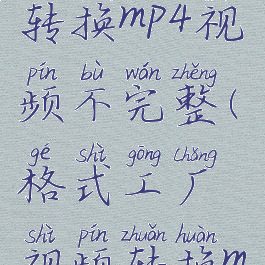 转换mp4视
pín bù wán zhěng
频不完整(
gé shì gōng chǎng
格式工厂
shì pín zhuǎn huàn
视频转换m